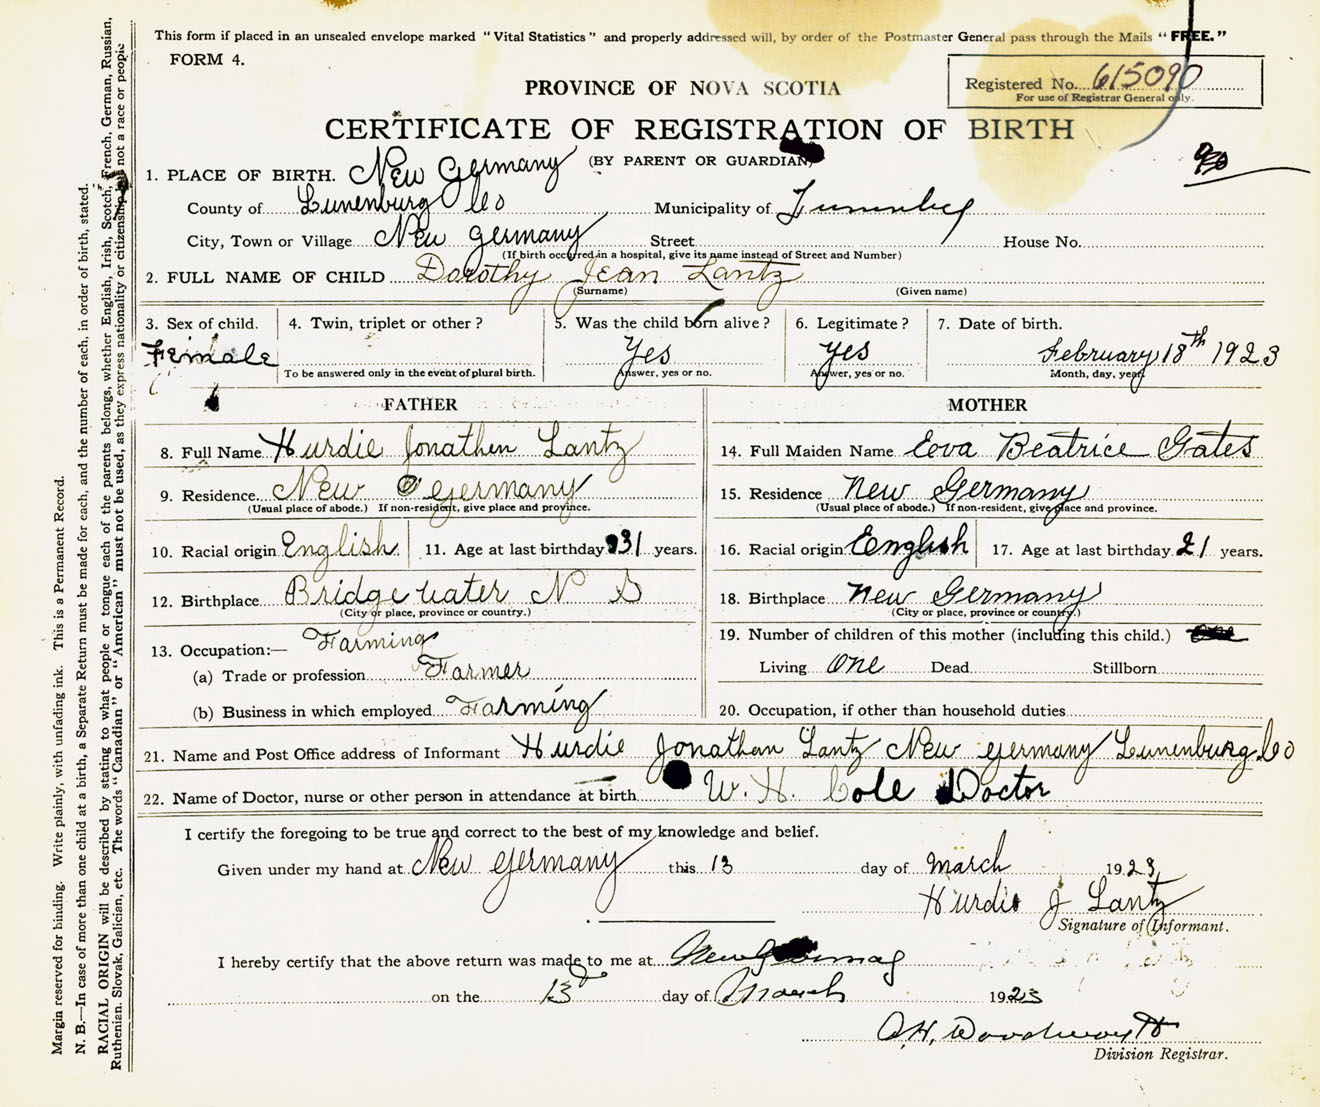 This form if placed in an unsealed envelope marked "Vital Statistics" and properly addressed will, by order of the Postmaster General pass through the Mails "FREE."
FORM 4.
Registered No. 615090
For use of Registrar General only.
PROVINCE OF NOVA SCOTIA
CERTIFICATE OF REGISTRATION OF BIRTH
(BY PARENT OR GUARDIAN)
1. PLACE OF BIRTH. New Germany
County of Lunenburg Co Municipality of
City, Town or Village New Germany Street House No.
(If birth occurred in a hospital, give its name instead of Street and Number)
2. FULL NAME OF CHILD Dorothy Jean Lantz
(Surname) (Given name)
3. Sex of child. 4. Twin, triplet or other? 5. Was the child born alive? 6. Legitimate? 7. Date of birth.
Female Yes yes February 18th 1923
To be answered only in the event of plural birth. Answer, yes or no. Answer, yes or no. Month, day, year
FATHER MOTHER
8. Full Name Hurdie Jonathen Lantz 14. Full Maiden Name Eova Beatrice Gates
9. Residence New Germany 15. Residence New Germany
(Usual place of abode.) If non-resident, give place and province. (Usual place of abode.) If non-resident, give place and province.
10. Racial origin English 11. Age at last birthday 31 years. 16. Racial origin English 17. Age at last birthday 21 years.
12. Birthplace Bridgewater N S 18. Birthplace New Germany
(City or place, province or country.) (City or place, province or country.)
13. Occupation:— Farming 19. Number of children of this mother (including this child.)
(a) Trade or profession Farmer Living One Dead Stillborn
(b) Business in which employed Farming 20. Occupation, if other than household duties
21. Name and Post Office address of Informant Hurdie Jonathan Lantz New Germany Lunenburg Co
22. Name of Doctor, nurse or other person in attendance at birth W. H. Cole Doctor
I certify the foregoing to be true and correct to the best of my knowledge and belief.
Given under my hand at New Germany this 13 day of March 1923
Hurdie J Lantz
Signature of Informant.
I hereby certify that the above return was made to me at New Germany
on the 13 day of March 1923
Division Registrar.
Margin reserved for binding. Write plainly, with unfading ink. This is a Permanent Record.
N. B.—In case of more than one child at a birth, a Separate Return must be made for each, and the number of each, in order of birth, stated.
RACIAL ORIGIN will be described by stating to what people or tongue each of the parents belongs, whether English, Irish, Scotch, French, German, Russian,
Ruthenian, Slovak, Galician, etc. The words "Canadian" or "American" must not be used, as they express nationality or citizenship but not a race or people